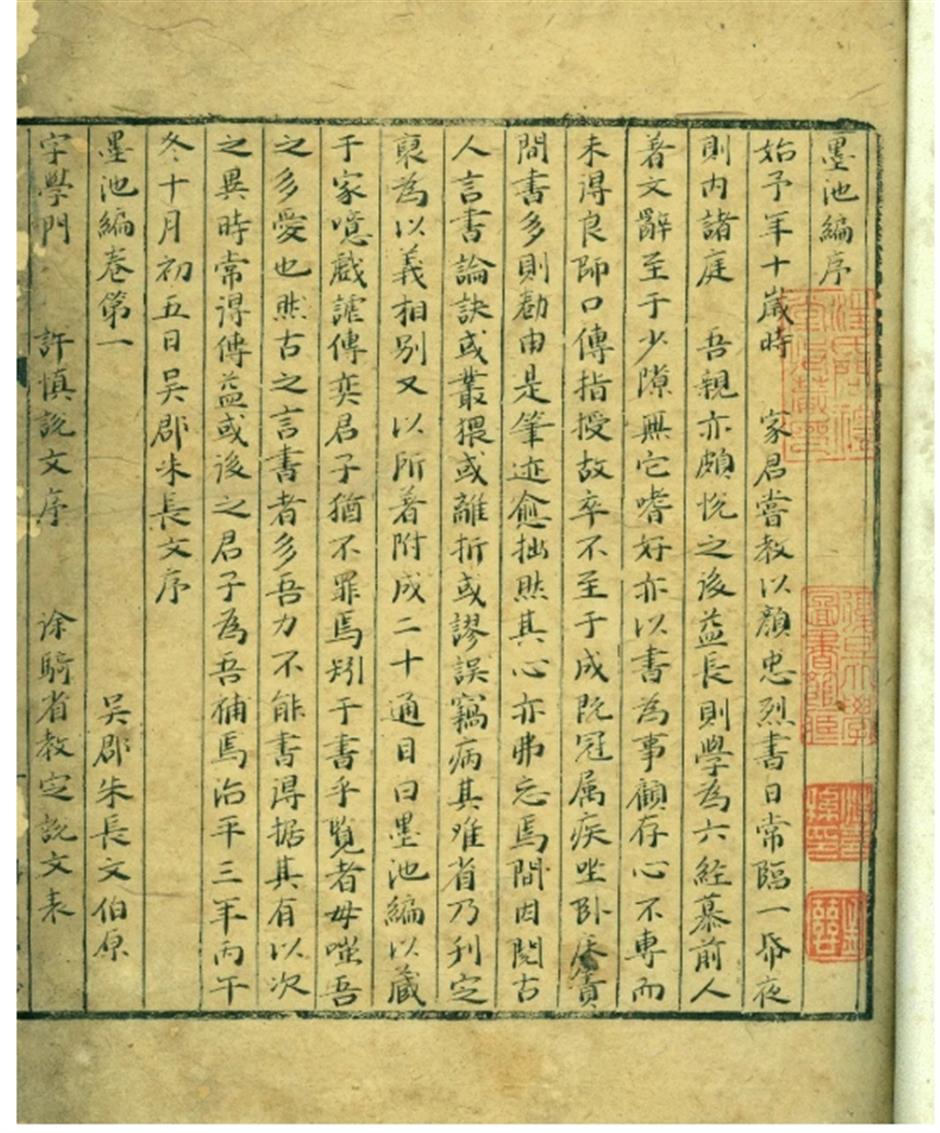 墨池編序
始予年十歲時　家君嘗教以顏忠烈書日常臨一帋夜
則內諸庭　吾親亦頗悅之後益長則學為六經慕前人
著文辭至于少隙無它嗜好亦以書為事顧存心不專而
未得良師口傳指授故卒不至于成既冠属疾坐卧床簀
間書多則勌由是筆迹愈拙然其心亦弗忘焉間因閱古
人言書論訣或叢猥或離折或謬誤竊病其难省乃刊定
裒為以義相別又以所著附成二十通目曰墨池編以藏
于家噫戲謔傳奕君子猶不罪焉矧于書乎覧者毋嗤吾
之多愛也然古之言書者多吾力不能書得据其有以次
之異時常得傳益或後之君子為吾補焉治平三年丙午
冬十月初五日吳郡朱長文序
墨池編卷第一　吳郡朱長文伯原
字學門　許慎說文序　徐騎省教定說文表